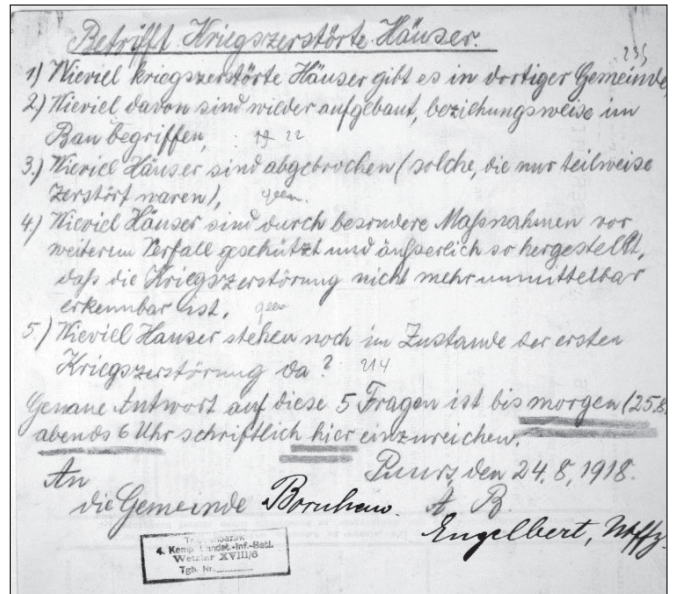 Betrifft Kriegszerstörte Häuser.
235
1) Wieviel kriegszerstörte Häuser gibt es in dortiger Gemeinde,
2.) Wieviel davon sind wieder aufgebaut, beziehungsweise im
Bau begriffen, 22
3.) Wieviel Häuser sind abgebrochen (solche, die nur teilweise
zerstört waren), geen.
4.) Wieviel Häuser sind durch besondere Maßnahmen vor
weiterem Verfall geschützt und äußerlich so hergestellt,
daß die Kriegszerstörung nicht mehr unmittelbar
erkennbar ist, geen
5.) Wieviel Hauser stehen noch im Zustande der ersten
Kriegszerstörung da? 214
Genaue Antwort auf diese 5 Fragen ist bis morgen (25.8.
abends 6 Uhr schriftlich hier einzureichen.
Puurs, den 24.8.1918.
An
die Gemeinde Bornhem. A. B.
Engelbert, Uoffz.
4. Komp. Landst.-Inf.-Batl.
Wetzlar XVIII/6
Tgb. Nr.